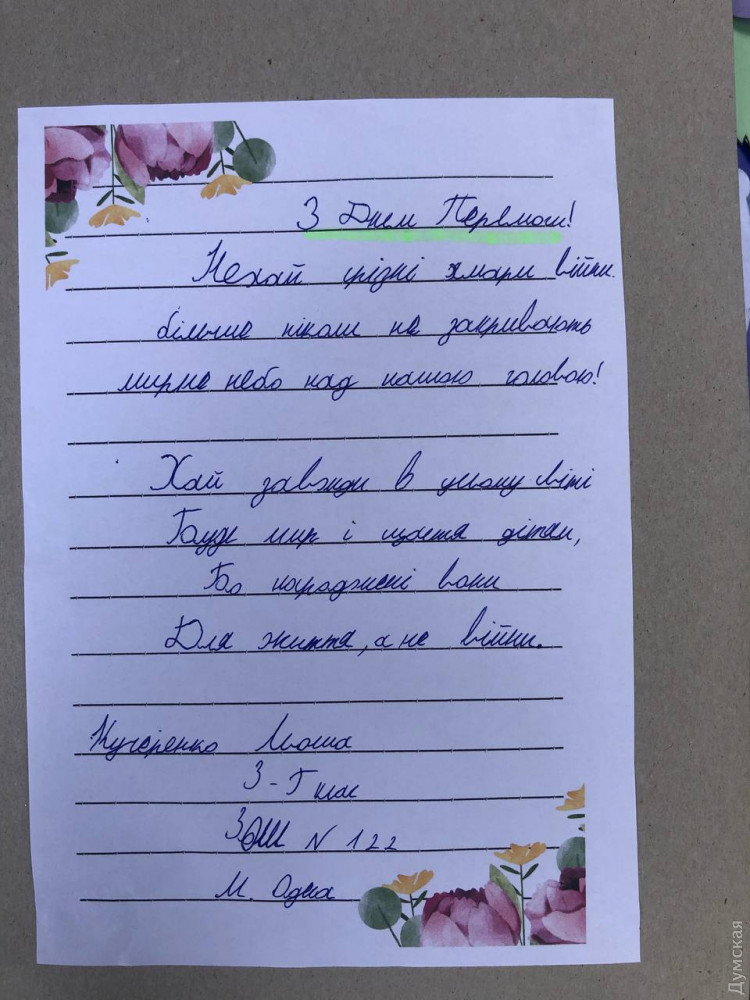 З Днем Перемоги!
Нехай грізні хмари війни
більше ніколи не закривають
мирне небо над нашою головою!
Хай завжди в усьому світі
Буде мир і щастя дітям,
Бо народжені вони
Для життя, а не війни.
Кучеренко Маша
3-Г клас
ЗОШ N 122
м. Одеса
Думская